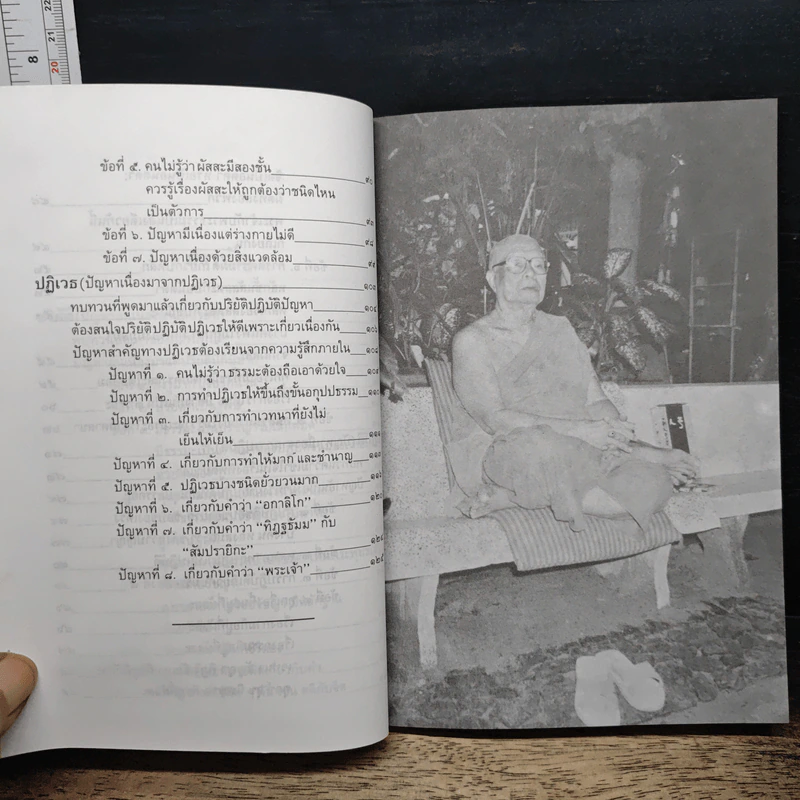 22
21
20
8
ข้อที่ ๕. คนไม่รู้ว่า ผัสสะมีสองชั้น ๙๐
ควรรู้เรื่องผัสสะให้ถูกต้องว่าชนิดไหน
เป็นตัวการ ๙๓
ข้อที่ ๖. ปัญหามีเนื่องแต่ร่างกายไม่ดี ๙๘
ข้อที่ ๗. ปัญหาเนื่องด้วยสิ่งแวดล้อม ๙๙
ปฏิเวธ (ปัญหาเนื่องมาจากปฏิเวธ)
ทบทวนที่พูดมาแล้วเกี่ยวกับปริยัติปฏิบัติปัญหา ๑๐๔
ต้องสนใจปริยัติปฏิบัติปฏิเวธให้ดีเพราะเกี่ยวเนื่องกัน ๑๐๖
ปัญหาสำคัญทางปฏิเวธต้องเรียนจากความรู้สึกภายใน ๑๐๘
ปัญหาที่ ๑. คนไม่รู้ว่าธรรมะต้องถือเอาด้วยใจ ๑๐๙
ปัญหาที่ ๒. การทำปฏิเวธให้ขึ้นถึงขั้นอกุปปธรรม ๑๑๐
ปัญหาที่ ๓. เกี่ยวกับการทำเวทนาที่ยังไม่
เย็นให้เย็น
ปัญหาที่ ๔. เกี่ยวกับการทำให้มาก และชำนาญ
ปัญหาที่ ๕. ปฏิเวธบางชนิดยั่วยวนมาก ๑๑๖
ปัญหาที่ ๖. เกี่ยวกับคำว่า “อกาลิโก”
ปัญหาที่ ๗. เกี่ยวกับคำว่า “ทิฏฐธัมม” กับ
“สัมปรายิกะ” ๑๒๔
ปัญหาที่ ๘. เกี่ยวกับคำว่า “พระเจ้า” ๑๒๕